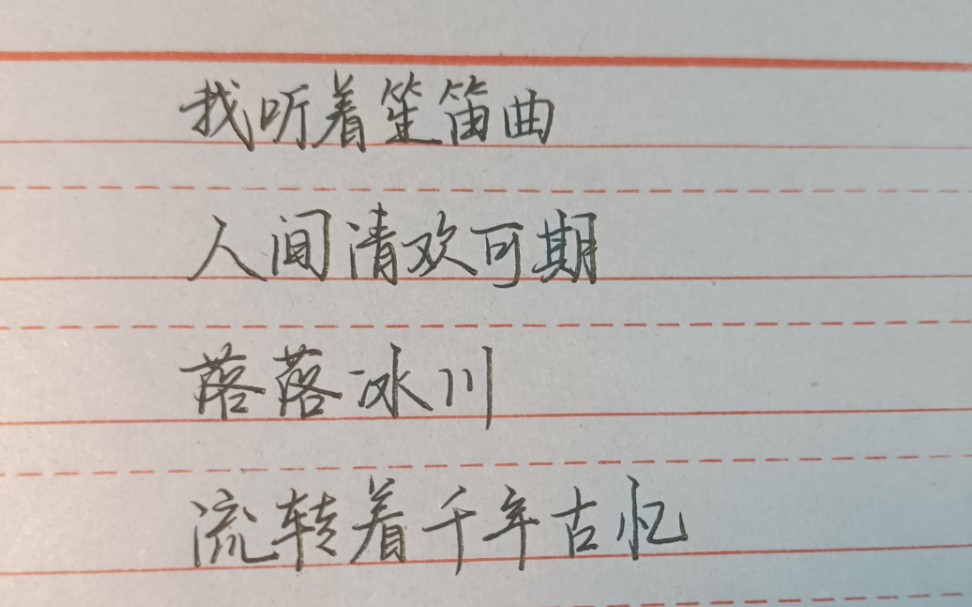 我听着笙笛曲
人间清欢可期
落落冰川
流转着千年古忆